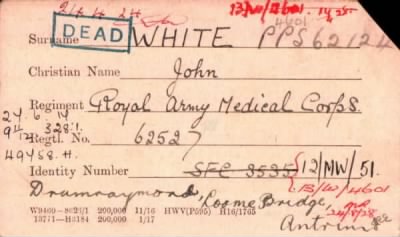 24.4.24
13/W/4601
4601
Surname WHITE PPS 62124
DEAD
Christian Name John
Regiment Royal Army Medical Corps.
27.6.19
Regtl. No. 62527
49458.H.
Identity Number SFC 3535 12/MW/51.
13/W/4601
Drumraymond, Loome Bridge,
24/8/28
Antrim
W9460—8623/1 200,000 11/16 HWV(P595) H16/1765
13771—H3184 200,000 1/17